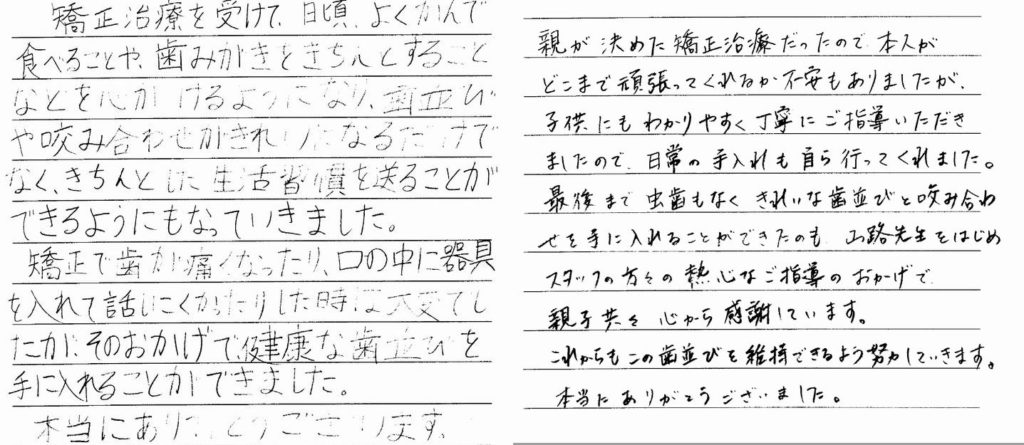 矯正治療を受けて、日頃、よくかんで
食べることや、歯みがきをきちんとすること
などを心がけるようになり、歯並び
や咬み合わせがきれいになるだけで
なく、きちんとした生活習慣を送ることが
できるようにもなっていきました。
矯正で歯が痛くなったり、口の中に器具
を入れて話しにくかったりした時は大変でし
たが、そのおかげで、健康な歯並びを
手に入れることができました。
本当にありがとうございます。
親が決めた矯正治療だったので、本人が
どこまで頑張ってくれるか不安もありましたが、
子供にもわかりやすく丁寧にご指導いただき
ましたので、日常の手入れも自ら行ってくれました。
最後まで虫歯もなくきれいな歯並びと咬み合わ
せを手に入れることができたのも、山路先生をはじめ
スタッフの方々の熱心なご指導のおかげで
親子共々心から感謝しています。
これからもこの歯並びを維持できるよう努力していきます。
本当にありがとうございました。